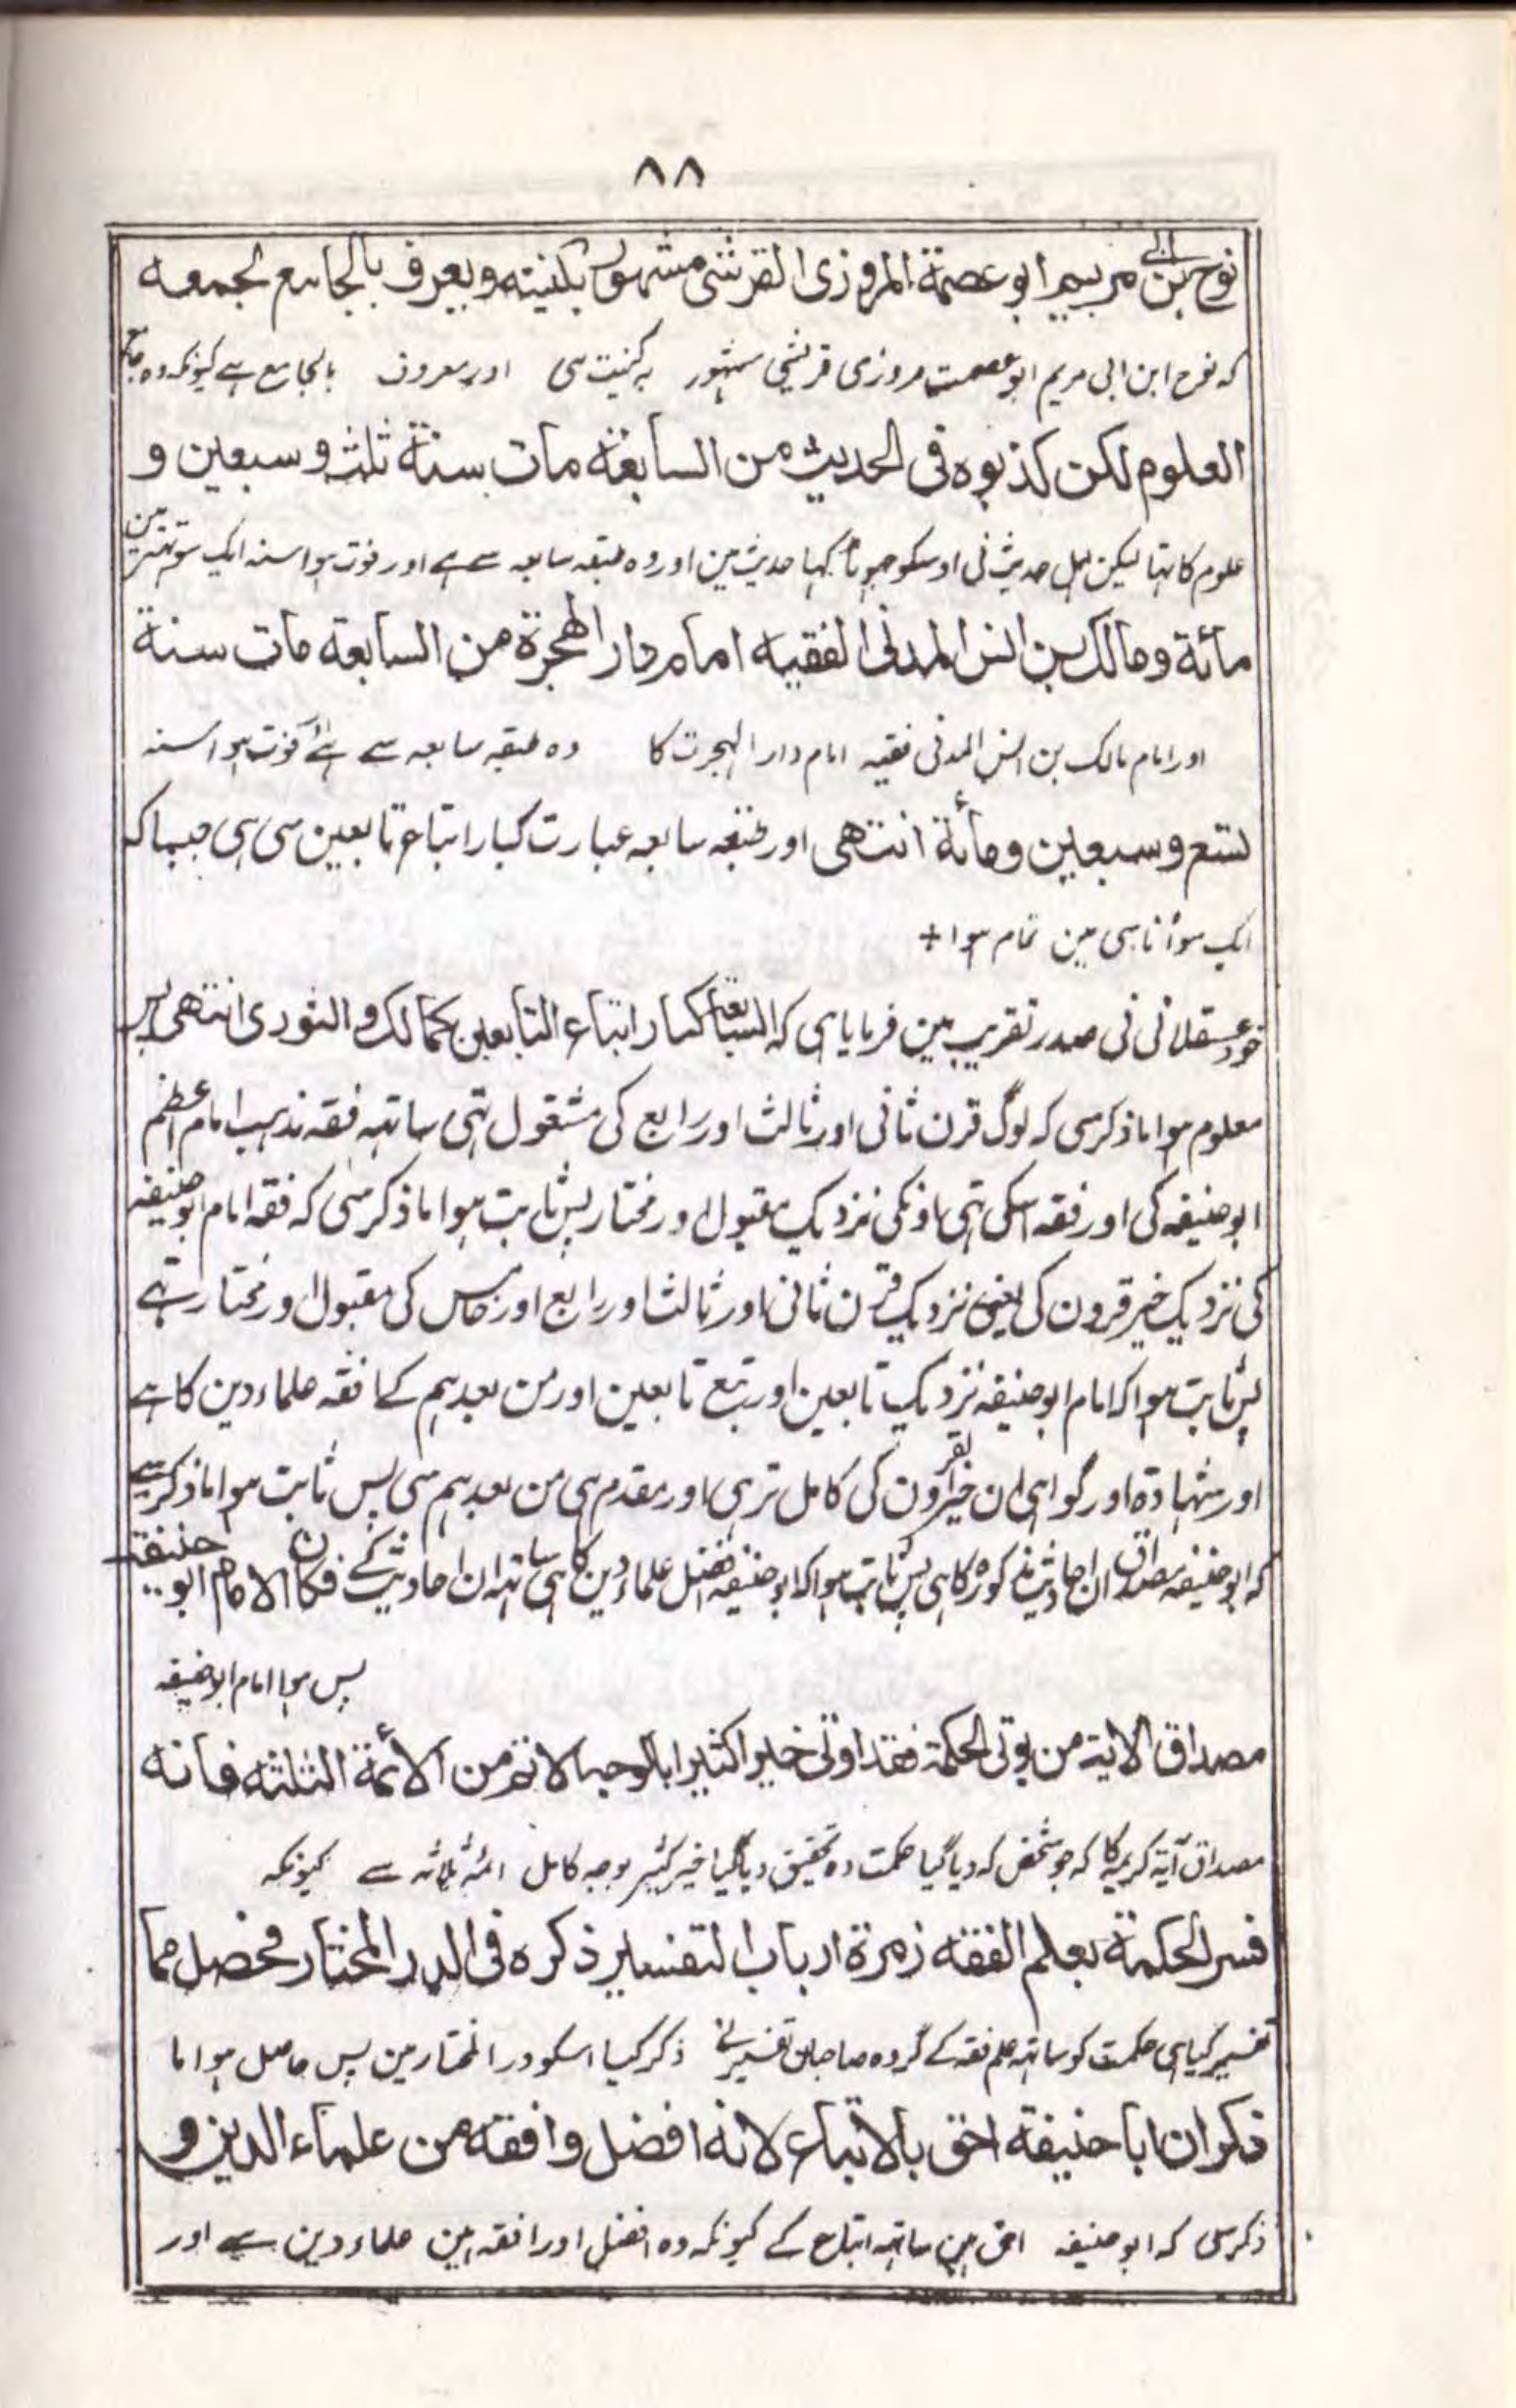 ۸۸
نوح بن ابی مریم ابو عصمة المروزی القرشی مشهور بکنیته و یعرف بالجامع لجمعه
که نوح ابن ابی مریم ابو عصمت مروزی قریشی مشهور به کنیت هی اور معروف بالجامع هے کیونکه وه جامع
العلوم لکن کذبوه فی الحدیث من السابعة مات سنة ثلث و سبعین و
علوم کا تہا لیکن اہل حدیث نی اوسکو جہوٹا کہا حدیث مین اور وہ طبقہ سابعہ سے ہے اور فوت ہوا سنہ ایک سو تہتر مین
مائة و مالک بن انس المدنی الفقیه امام دار الهجرة من السابعة مات سنة
اور امام مالک بن انس المدنی فقیہ امام دار الہجرت کا وہ طبقہ سابعہ سے ہے فوت ہوا سنہ
تسع و سبعین و مائة انتهی اور طبقہ سابعہ عبارت کبار اتباع تابعین سی ہی جیسا کہ
ایک سو اناسی مین تمام ہوا +
خود عسقلانی نی صدر تقریب مین فرمایا ہی کہ السابعة کبار اتباع التابعین کمالک و الثوری انتهی پس
معلوم ہوا ما ذکر سی کہ لوگ قرن ثانی اور ثالث اور رابع کی مشغول تہی ساتہہ فقہ مذہب امام اعظم
ابو حنیفہ کی اور فقہ اسکی تہی اونکی نزدیک مقبول اور مختار پس ثابت ہوا ما ذکر سی کہ فقہ امام ابو حنیفہ
کی نزدیک خیر قرون کی یعنی نزدیک قرن ثانی اور ثالث اور رابع اور خامس کی مقبول اور مختار ہے
پس ثابت ہوا کہ امام ابو حنیفہ نزدیک تابعین اور تبع تابعین اور من بعدہم کے افقہ علماء دین کا ہے
اور شہادة اور گواہی ان خیر القرون کی کامل تر ہی اور مقدم ہی من بعدہم سی پس ثابت ہوا ما ذکر سے
کہ ابو حنیفہ مصداق ان احادیث مذکورہ کا ہی پس ثابت ہوا کہ ابو حنیفہ افضل علماء دین کا ہی ساتہہ ان احادیث کے فکان الامام ابو حنیفة
پس ہوا امام ابو حنیفہ
مصداق الایة من یوتی الحکمة فقد اوتی خیرا کثیرا بالوجه الاتم من الأئمة الثلثة فانه
مصداق آیۃ کریمہ کا کہ جو شخص کہ دیا گیا حکمت وہ تحقیق دیا گیا خیر کثیر بوجہ کامل ائمہ ثلاثہ سے کیونکہ
فسر الحکمة بعلم الفقه زمرة ارباب التفسیر ذکره فی الدر المختار فحصل مما
تفسیر کیا ہی حکمت کو ساتہہ علم فقہ کے گروہ صاحبان تفسیر نے ذکر کیا اسکو در المختار مین پس حاصل ہوا ما
ذکر ان ابا حنیفة احق بالاتباع لانه افضل و افقه من علماء الدین و
ذکر سی کہ ابو حنیفہ احق ہین ساتہہ اتباع کے کیونکہ وہ افضل اور افقہ ہین علماء دین سے اور